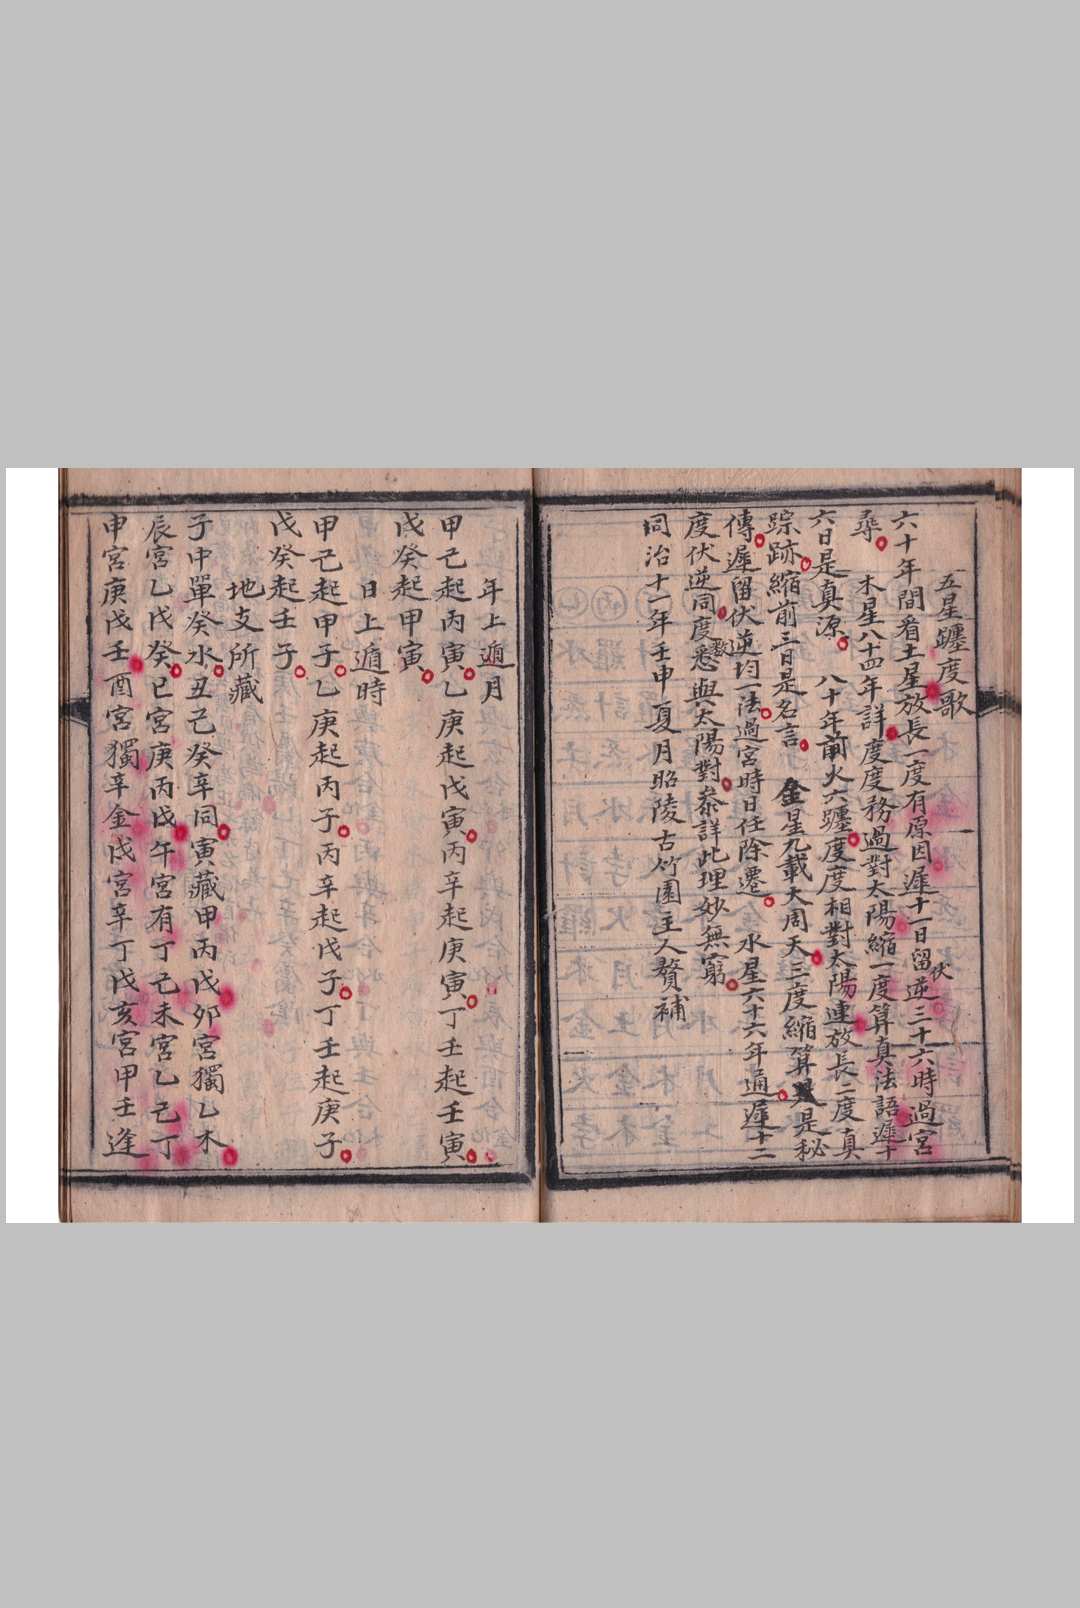 五星躔度歌
六十年間看土星放長一度有原因遲十一日留逆三十六時過宮
伏
尋 木星八十四年詳度度務過對太陽縮一度算真法語遲十
六日是真源 八十年前火六躔度度相對太陽連放長二度真
踪跡縮前三日是名言 金星九載大周天三度縮算是秘
傳遲留伏逆均一法過宮時日任除遷 水星六十六年通遲十二
度伏逆同度悉與太陽對叅詳此理妙無窮
數
同治十一年壬申夏月昭陵古竹園主人贅補
年上遁月
甲己起丙寅乙庚起戊寅丙辛起庚寅丁壬起壬寅
戊癸起甲寅
日上遁時
甲己起甲子乙庚起丙子丙辛起戊子丁壬起庚子
戊癸起壬子
地支所藏
子中單癸水丑己癸辛同寅藏甲丙戊卯宮獨乙木
辰宮乙戊癸巳宮庚丙戊午宮有丁己未宮乙己丁
申宮庚戊壬酉宮獨辛金戌宮辛丁戊亥宮甲壬逢